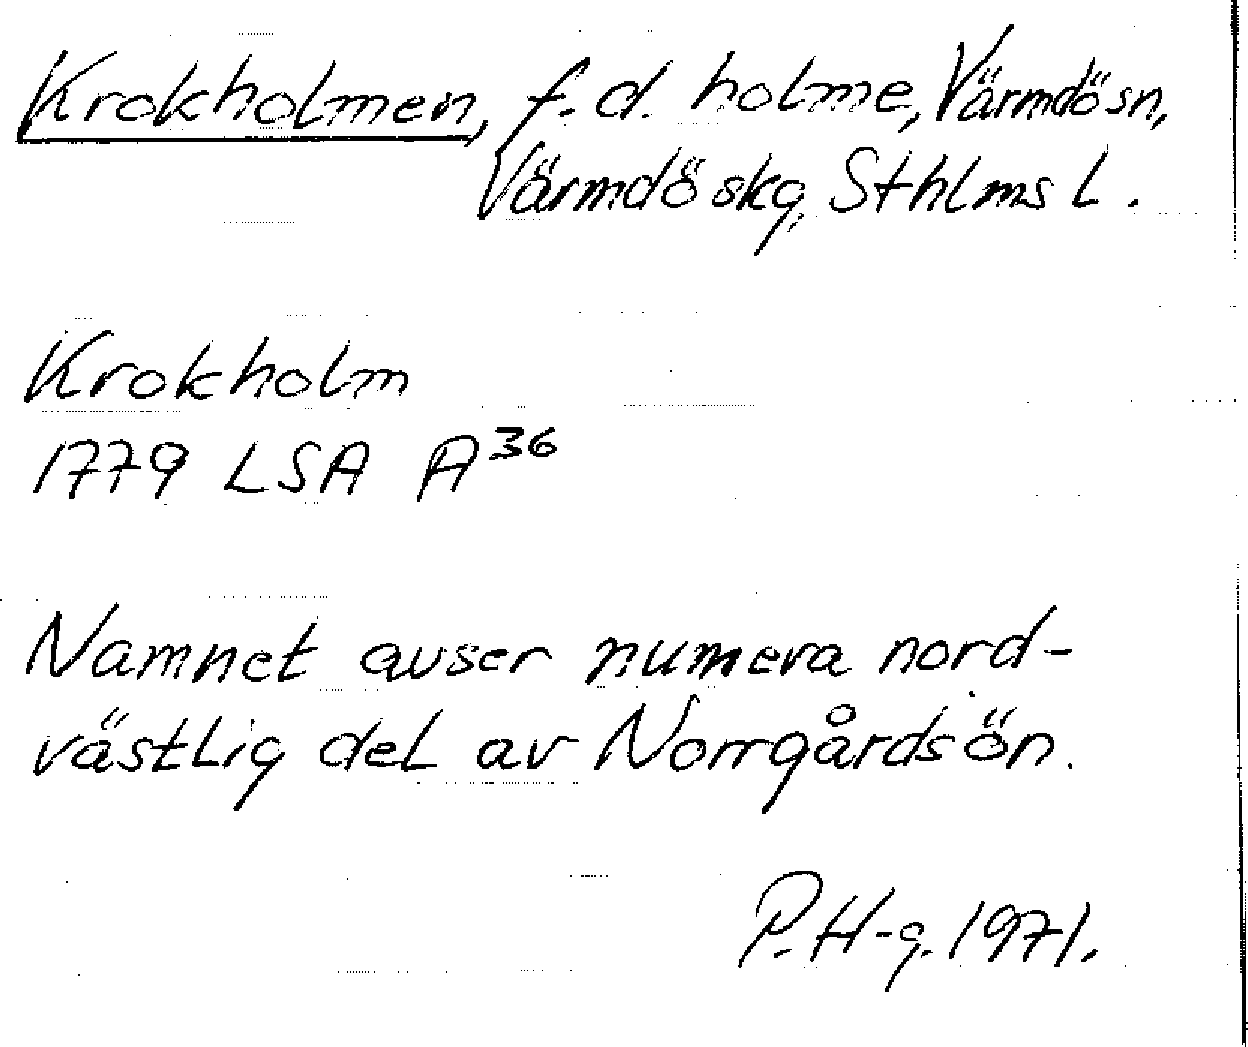 Krokholmen, f.d. holme, Värmdö sn,
Värmdö skg, Sthlms l.
Krokholm
1779 LSA A36
Namnet avser numera nord-
västlig del av Norrgårdsön.
P.H-g. 1971.